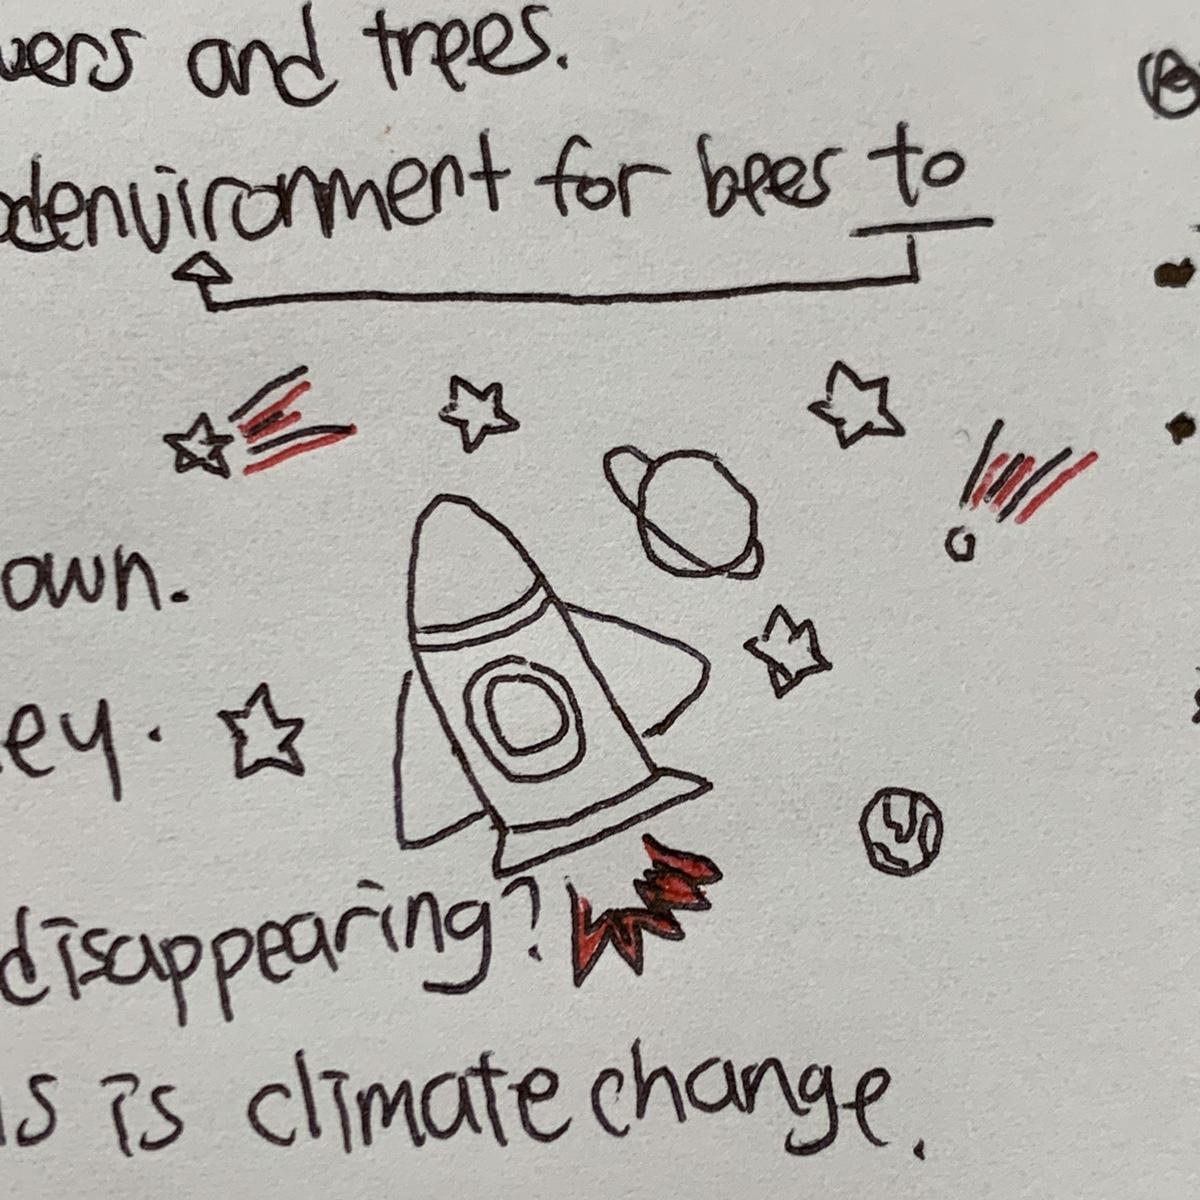 and trees.
environment for bees to
own.
ey.
disappearing?
is climate change.